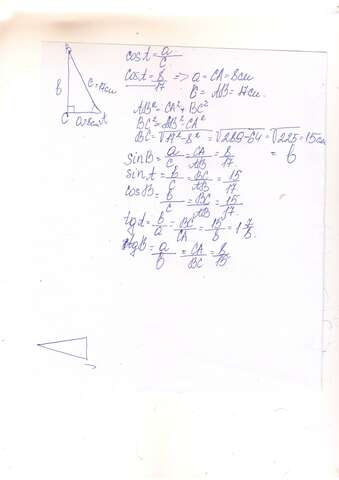 cos A = a/c
cos A = 8/17 => a = CA = 8см
AB = 17см
AB² = CA² + BC²
BC² = AB² - CA²
BC = √17² - 8² = √289 - 64 = √225 = 15см
= b
sin B = a/c = CA/AB = 8/17
sin A = b/c = BC/AB = 15/17
cos B = b/c = BC/AB = 15/17
tg A = b/a = BC/CA = 15/8 = 1 7/8
tg B = a/b = CA/BC = 8/15
b
c = 17см
C a = 8см A